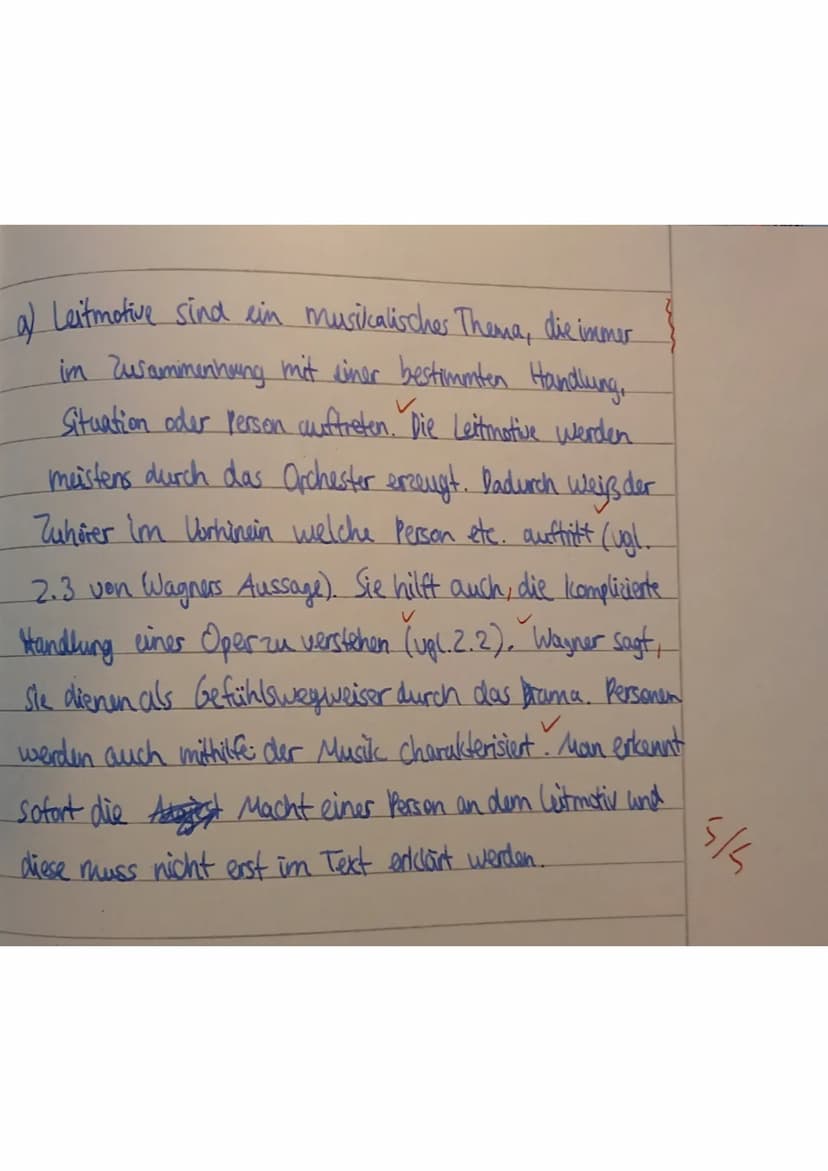 a) Leitmotive sind ein musikalisches Thema, die immer
im Zusammenhang mit einer bestimmten Handlung,
Situation oder Person auftreten. Die Leitmotive werden
meistens durch das Orchester erzeugt. Dadurch weiß der
Zuhörer im Vorhinein welche Person etc. auftritt (vgl.
Z.3 von Wagners Aussage). Sie hilft auch, die komplizierte
Handlung einer Oper zu verstehen (vgl. Z.2). Wagner sagt,
sie dienen als Gefühlswegweiser durch das Drama. Personen
werden auch mithilfe der Musik charakterisiert. Man erkennt
sofort die Macht einer Person an dem Leitmotiv und
diese muss nicht erst im Text erklärt werden.
5/5